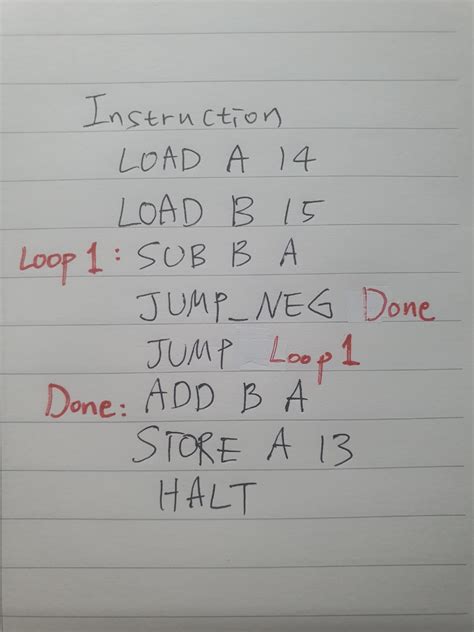 Instruction
LOAD A 14
LOAD B 15
Loop1: SUB B A
JUMP_NEG Done
JUMP Loop1
Done: ADD B A
STORE A 13
HALT